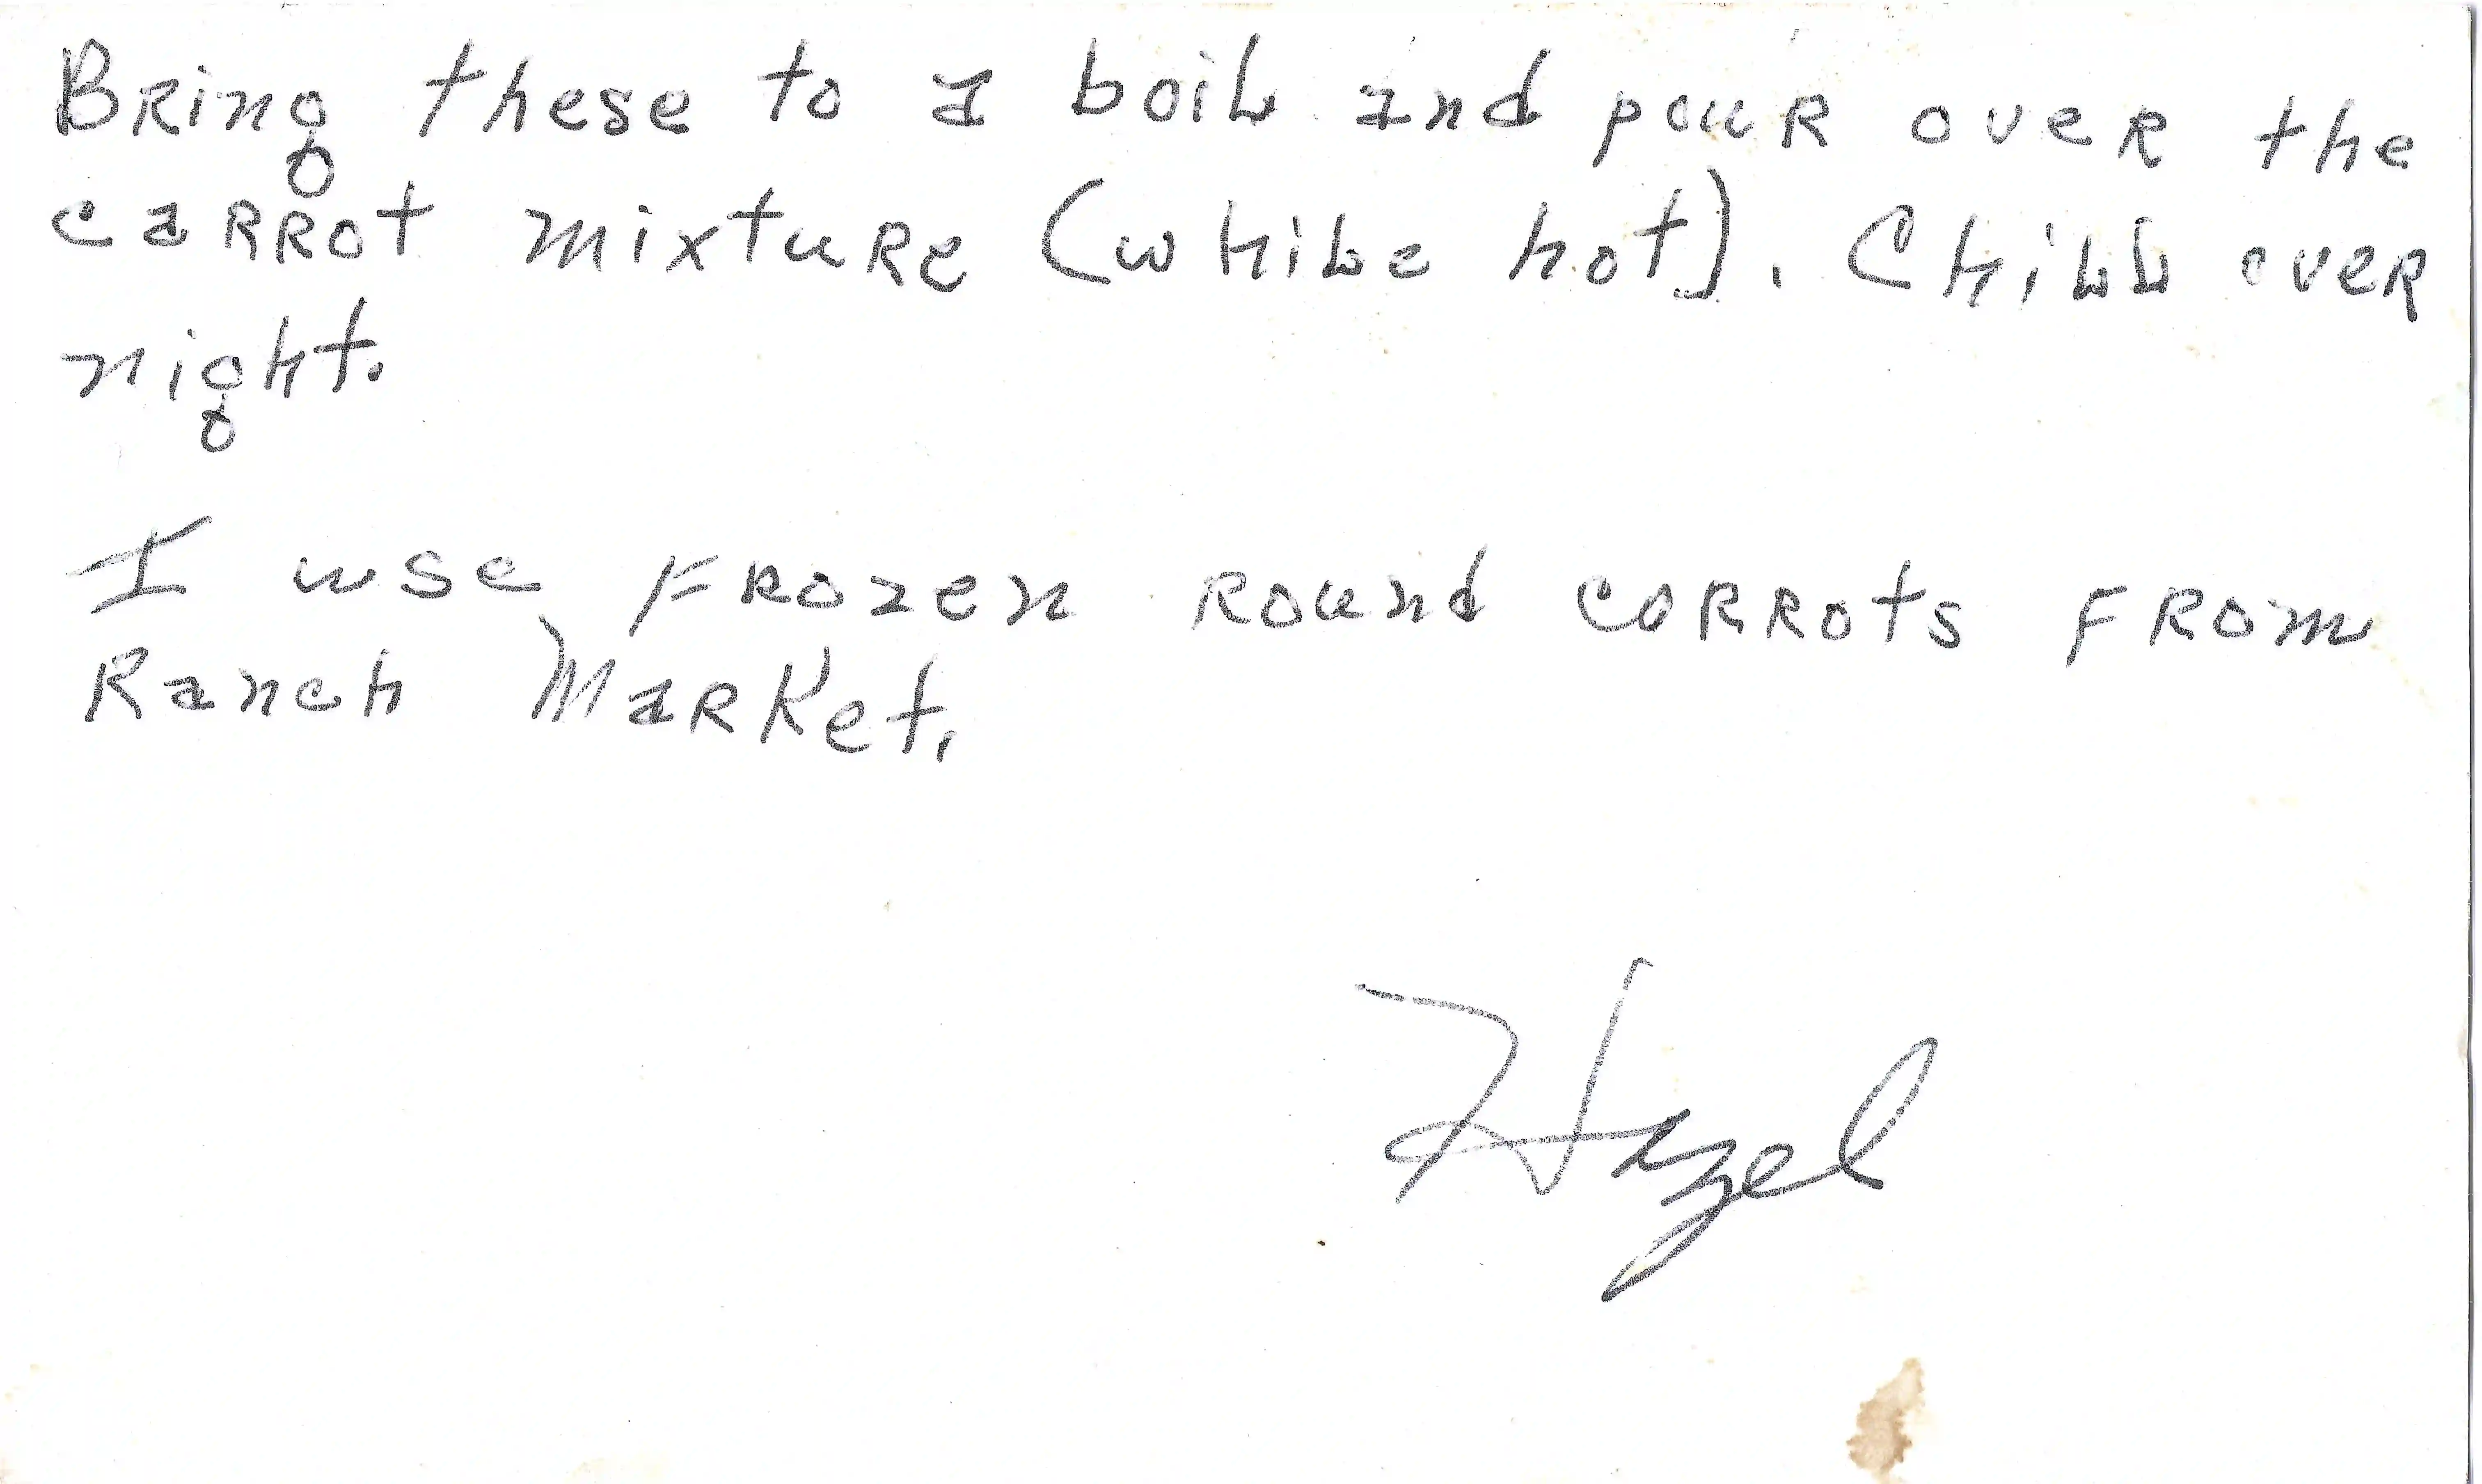 Bring these to a boil and pour over the
carrot mixture (while hot). Chill over
night.
I use Frozen round corrots from
Ranch Market.
Hazel